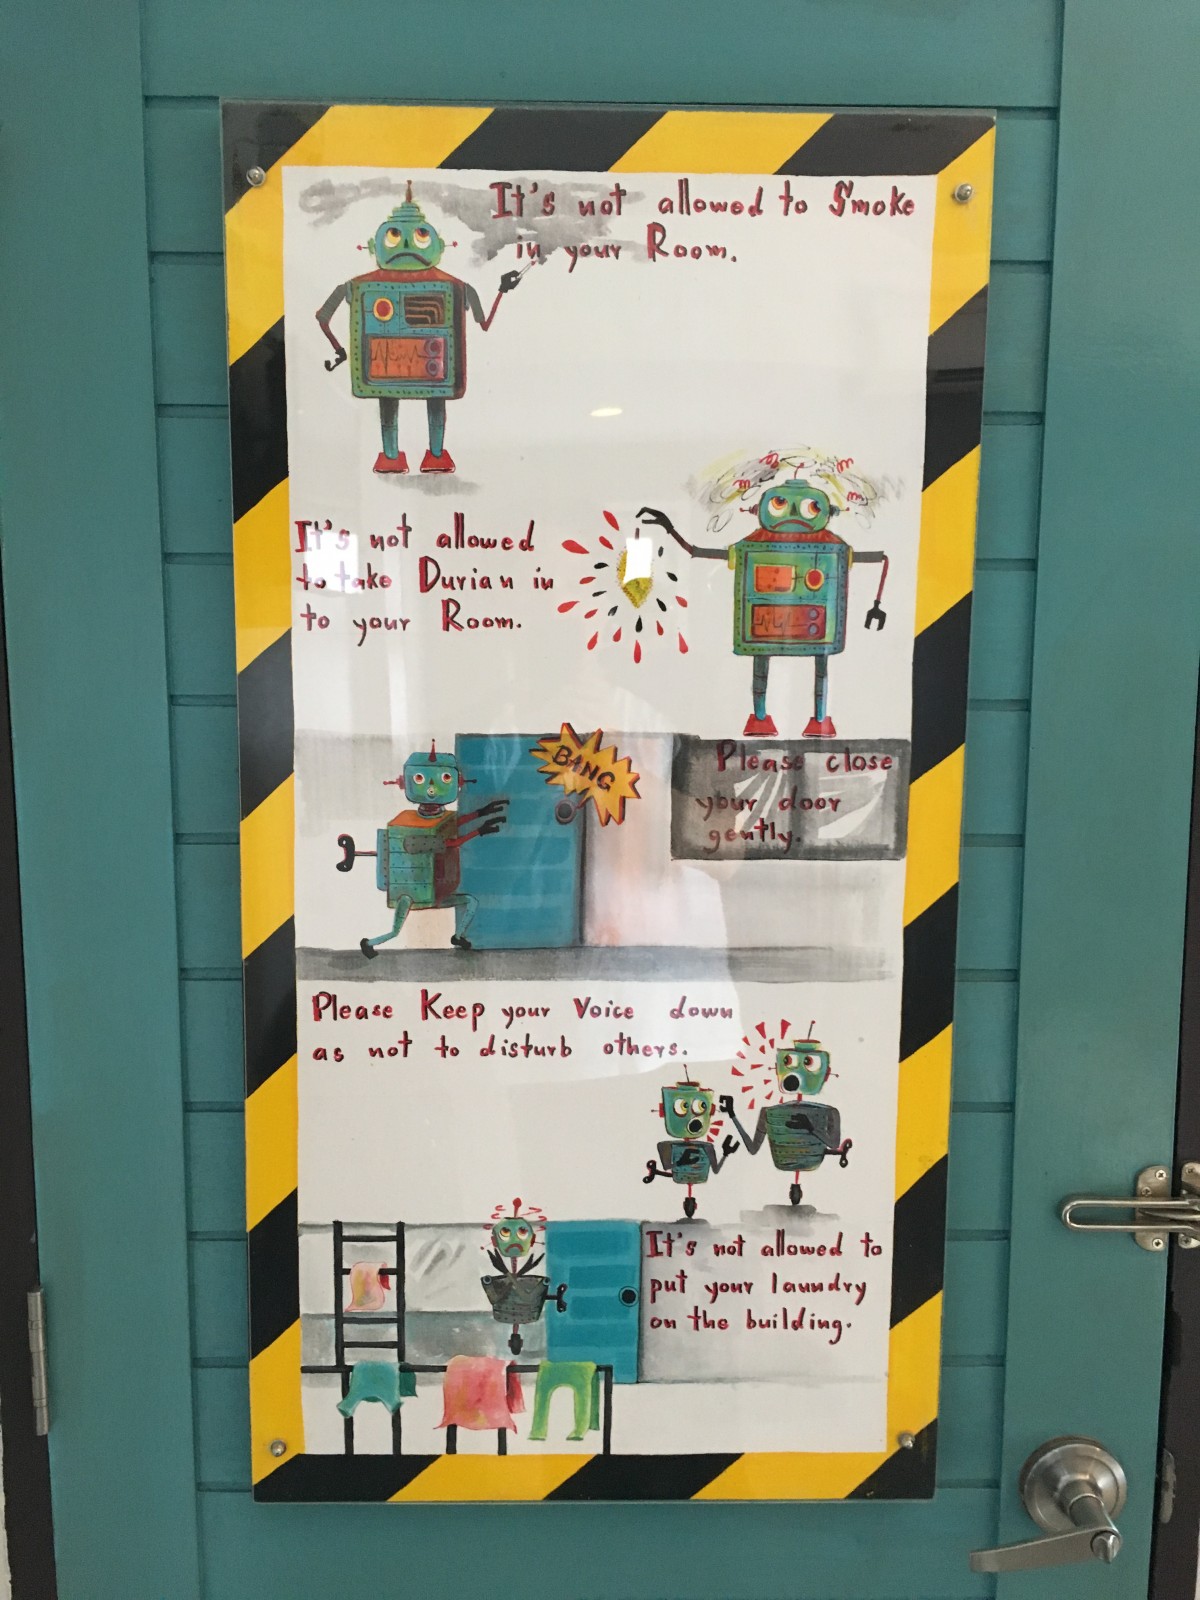 It's not allowed to Smoke
in your Room.
It's not allowed
to take Durian in
to your Room.
BANG
Please close
your door
gently.
Please Keep your Voice down
as not to disturb others.
It's not allowed to
put your laundry
on the building.